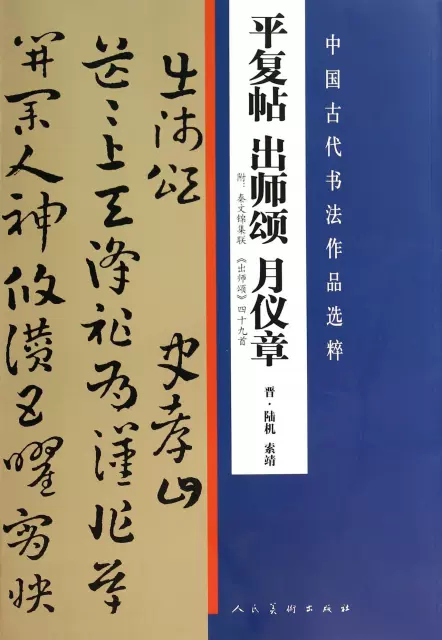 中国古代书法作品选粹
平复帖 出师颂 月仪章
附：秦文锦集联《出师颂》四十九首
晋·陆机 索靖
人民美术出版社
出师颂 史孝山
茫茫上天降祚为汉作基
开关人神攸赞五曜宵映